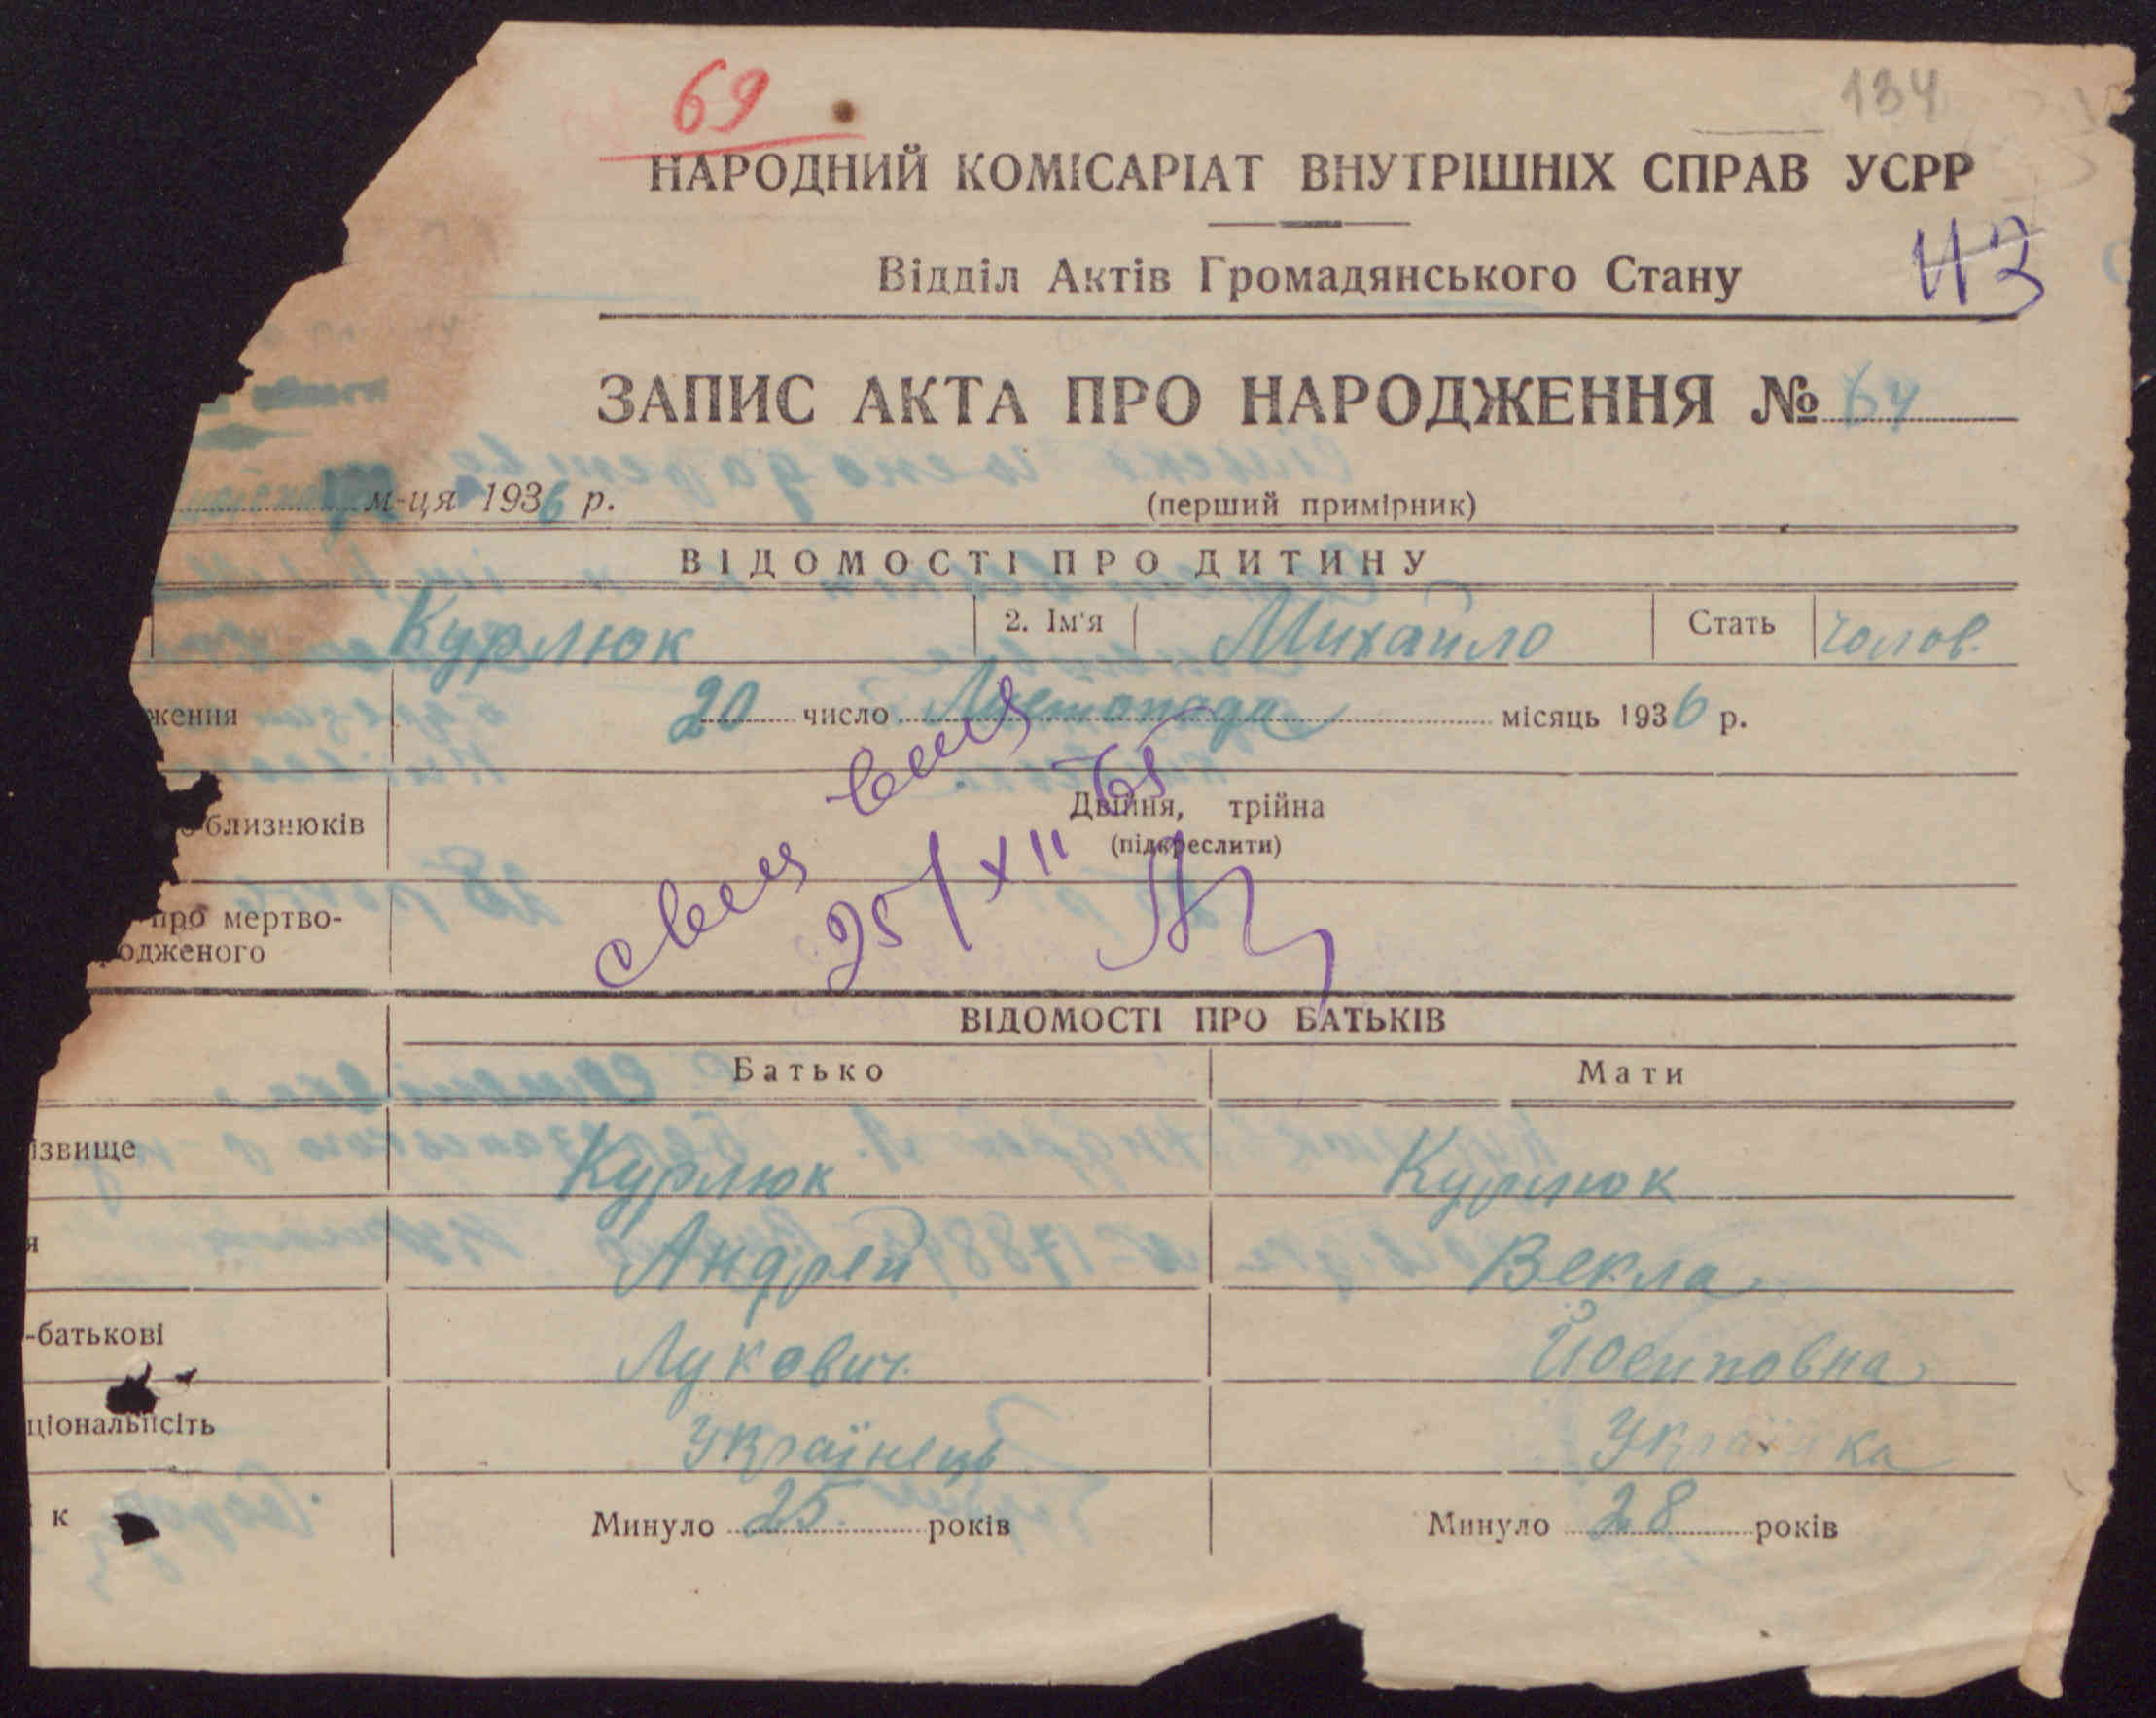 69
134
НАРОДНИЙ КОМІСАРІАТ ВНУТРІШНІХ СПРАВ УСРР
Відділ Актів Громадянського Стану
ЗАПИС АКТА ПРО НАРОДЖЕННЯ № 64
м-ця 1936 р. (перший примірник)
ВІДОМОСТІ ПРО ДИТИНУ
Курлюк 2. Ім'я Михайло Стать Чолов.
ження 20 число Листопада місяць 1936 р.
близнюків Двійня, трійна
(підкреслити)
25/XII 65
про мертво-
родженого
ВІДОМОСТІ ПРО БАТЬКІВ
Батько Мати
ізвище Курлюк Курлюк
я Андрей Векла
-батькові Лукович Йосиповна
ціональність Українець Українка
к Минуло 25 років Минуло 28 років